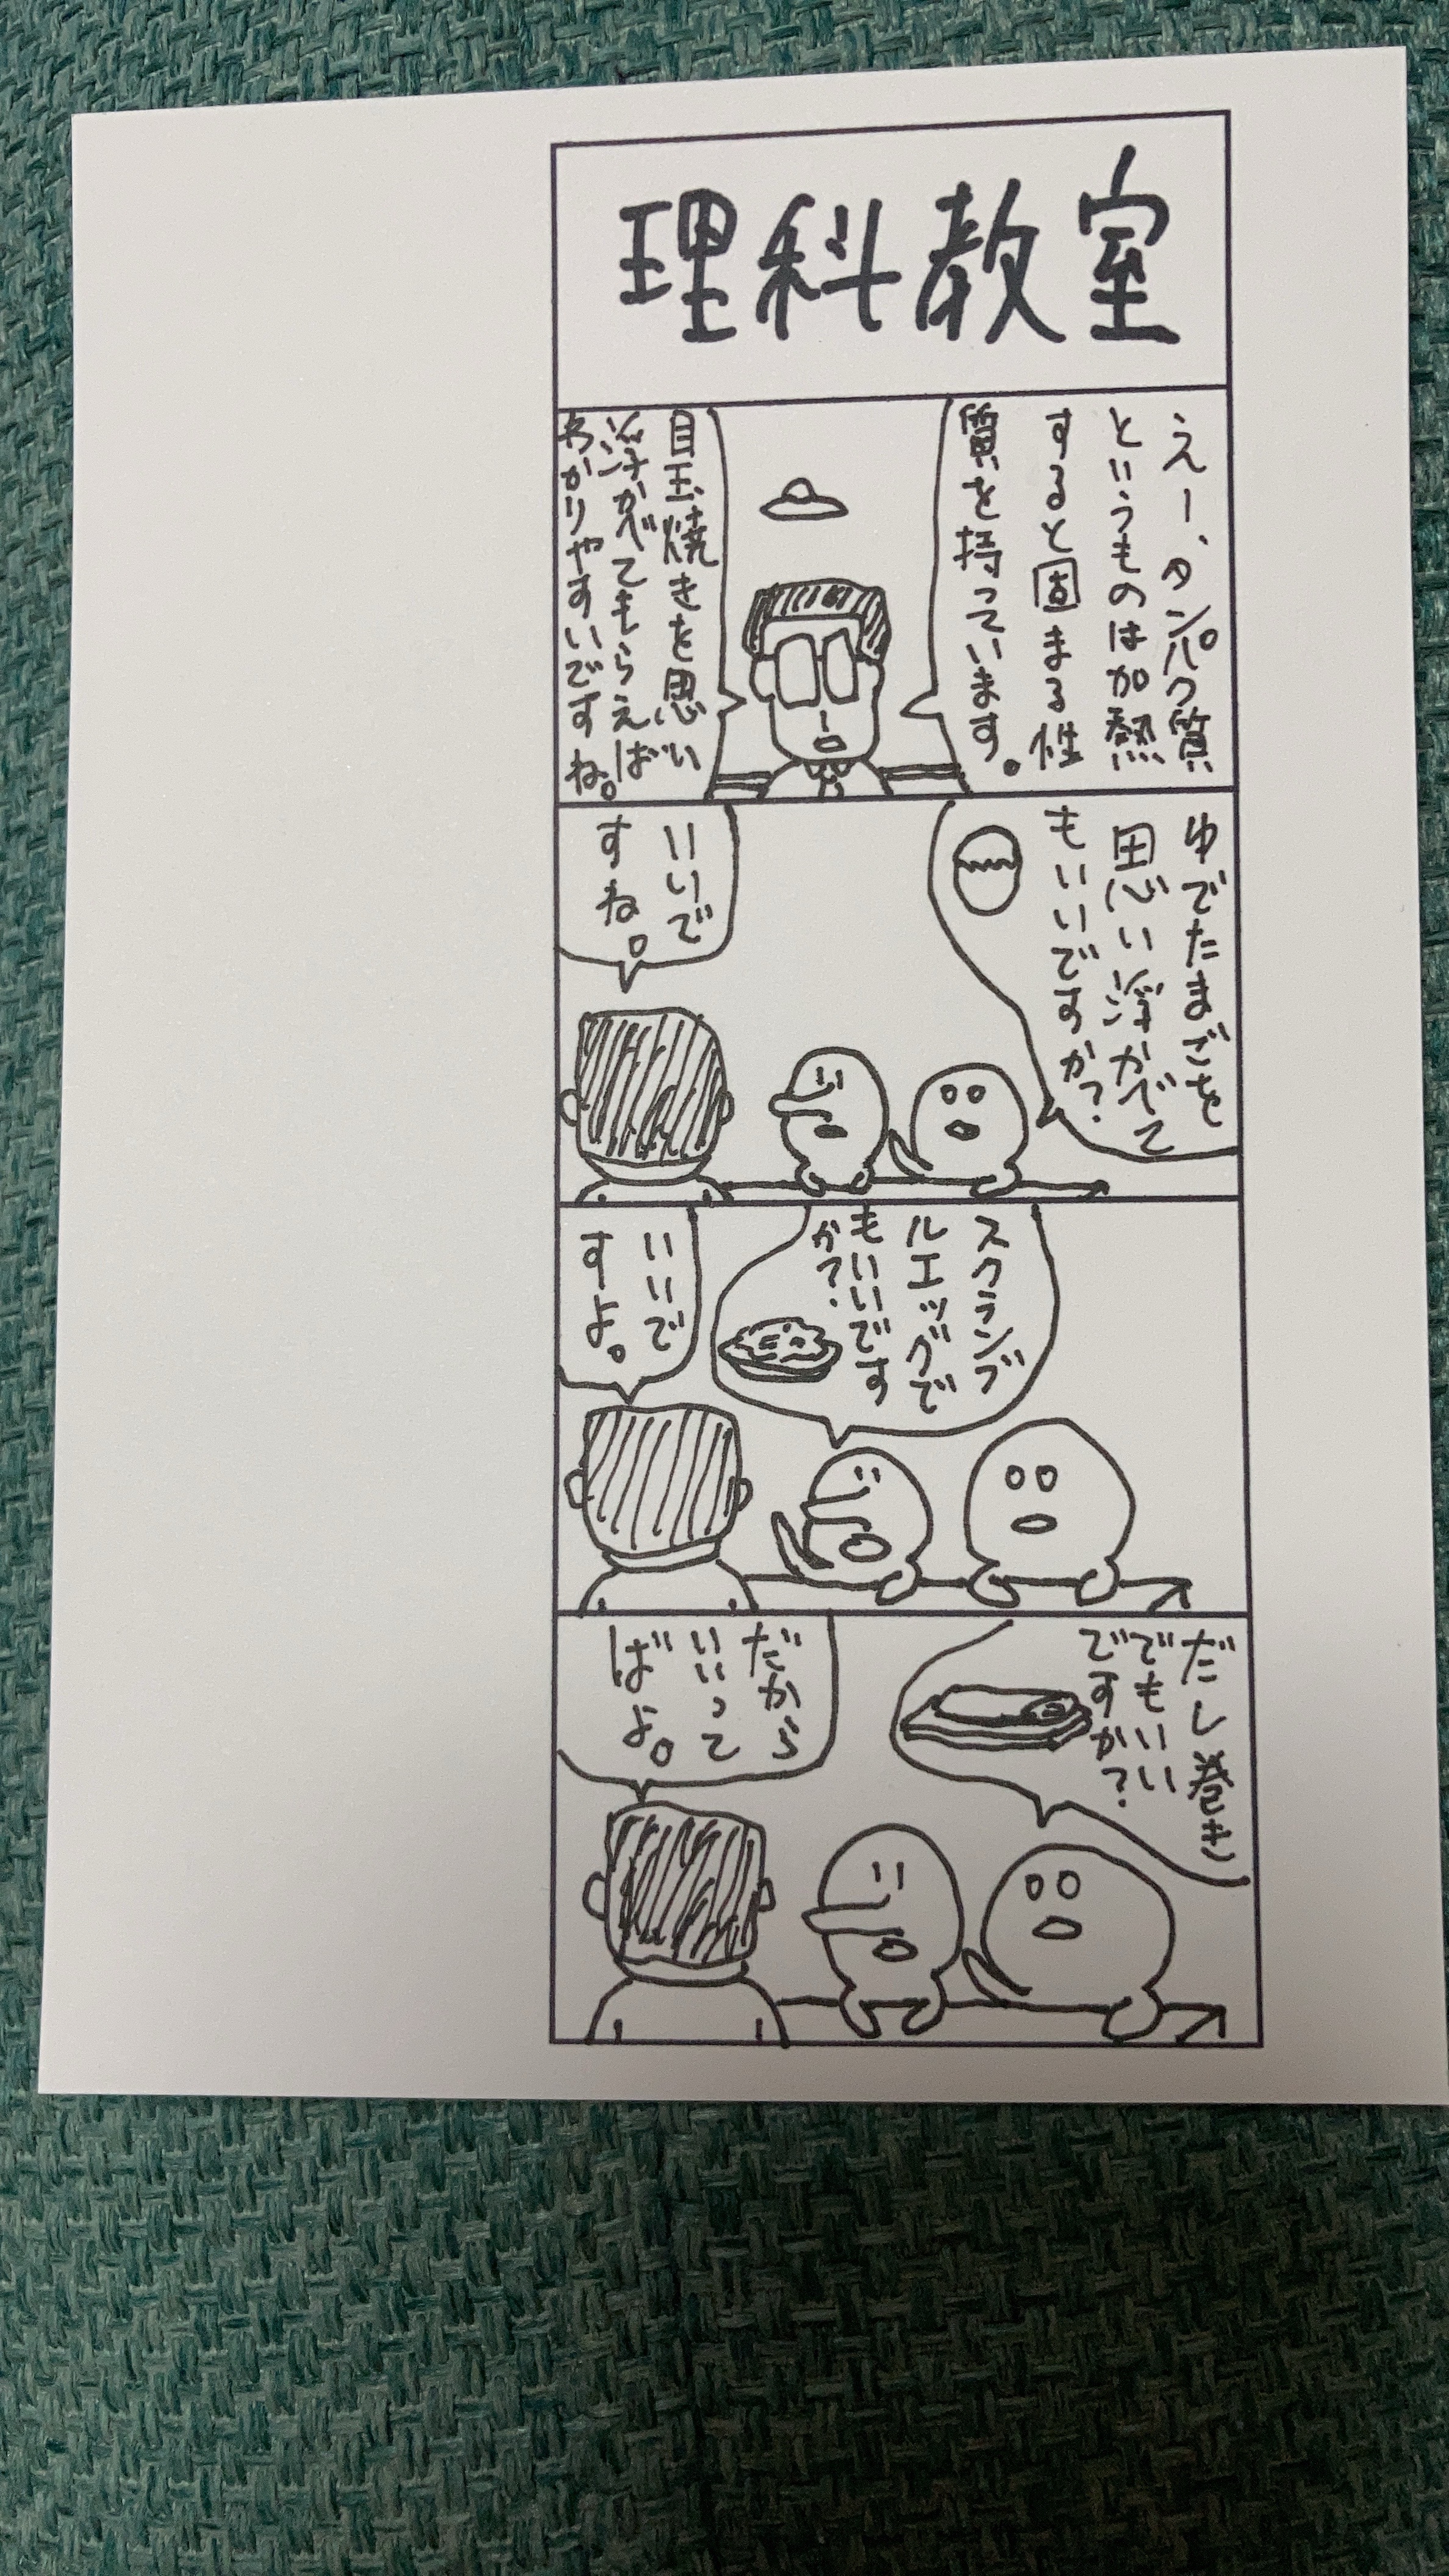 理科教室
えー、タンパク質
というものは加熱
すると固まる性
質を持っています。
目玉焼きを思い
浮かべてもらえば
わかりやすいですね。
ゆでたまごを
思い浮かべて
もいいですか?
いいで
すね。
スクランブ
ルエッグで
もいいです
か?
いいで
すよ。
だし巻き
でもいい
ですか?
だから
いいって
ばよ。